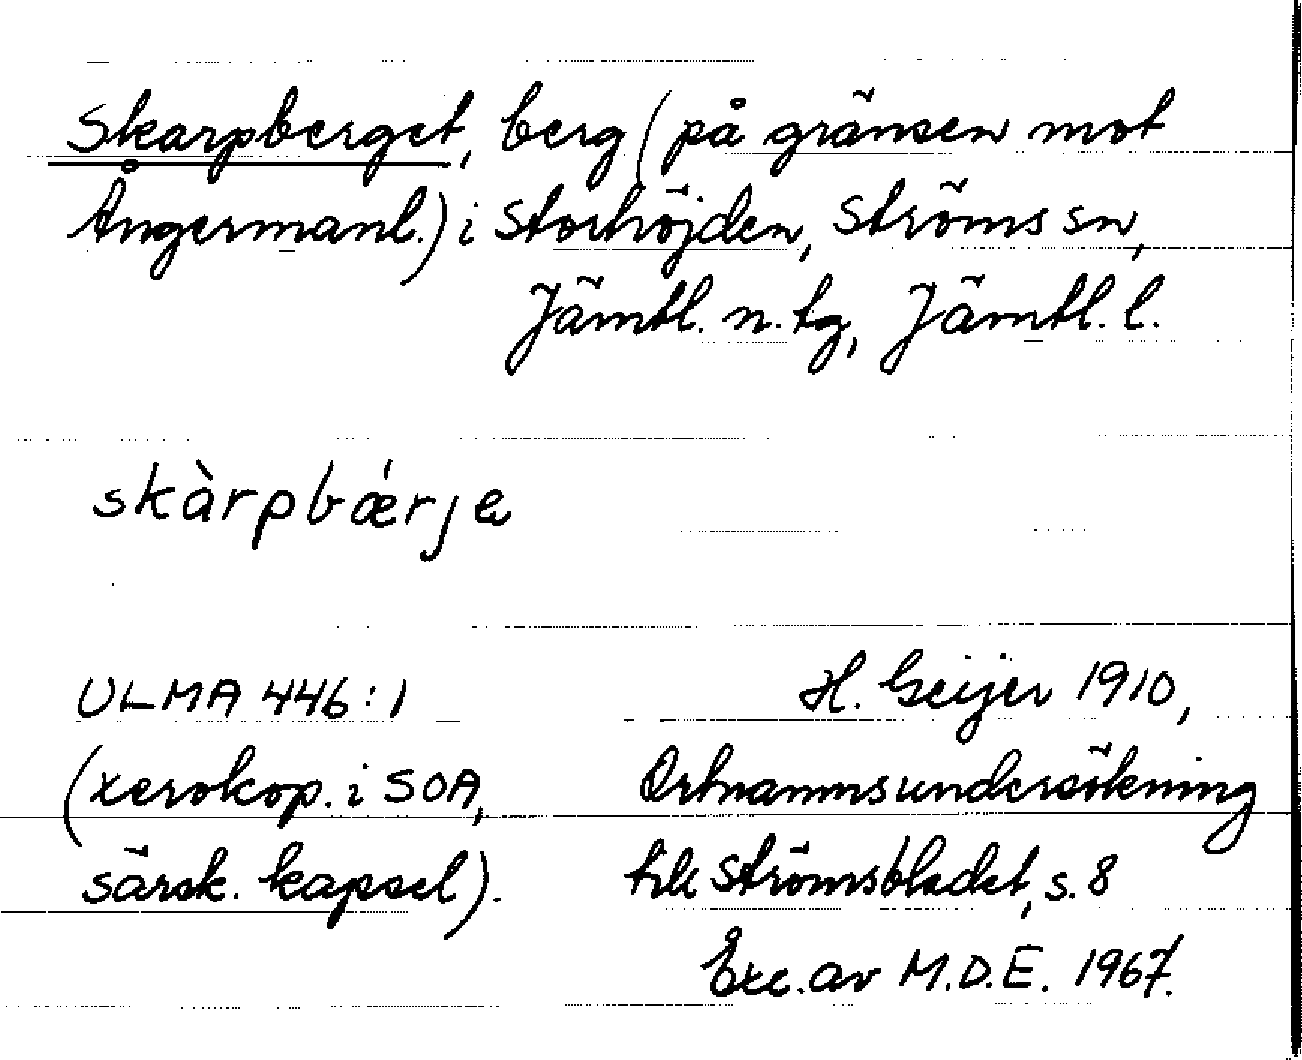 Skarpberget, berg (på gränsen mot
Ångermanl.) i Storhöjden, Ströms sn,
Jämtl. n. tg, Jämtl. l.
skàrpbǽrje
ULMA 446:1
(xerokop. i SOA,
särsk. kapsel).
H. Geijer 1910,
Ortnamnsundersökning
till Strömsbladet, s. 8
Exc. av M.D.E. 1967.